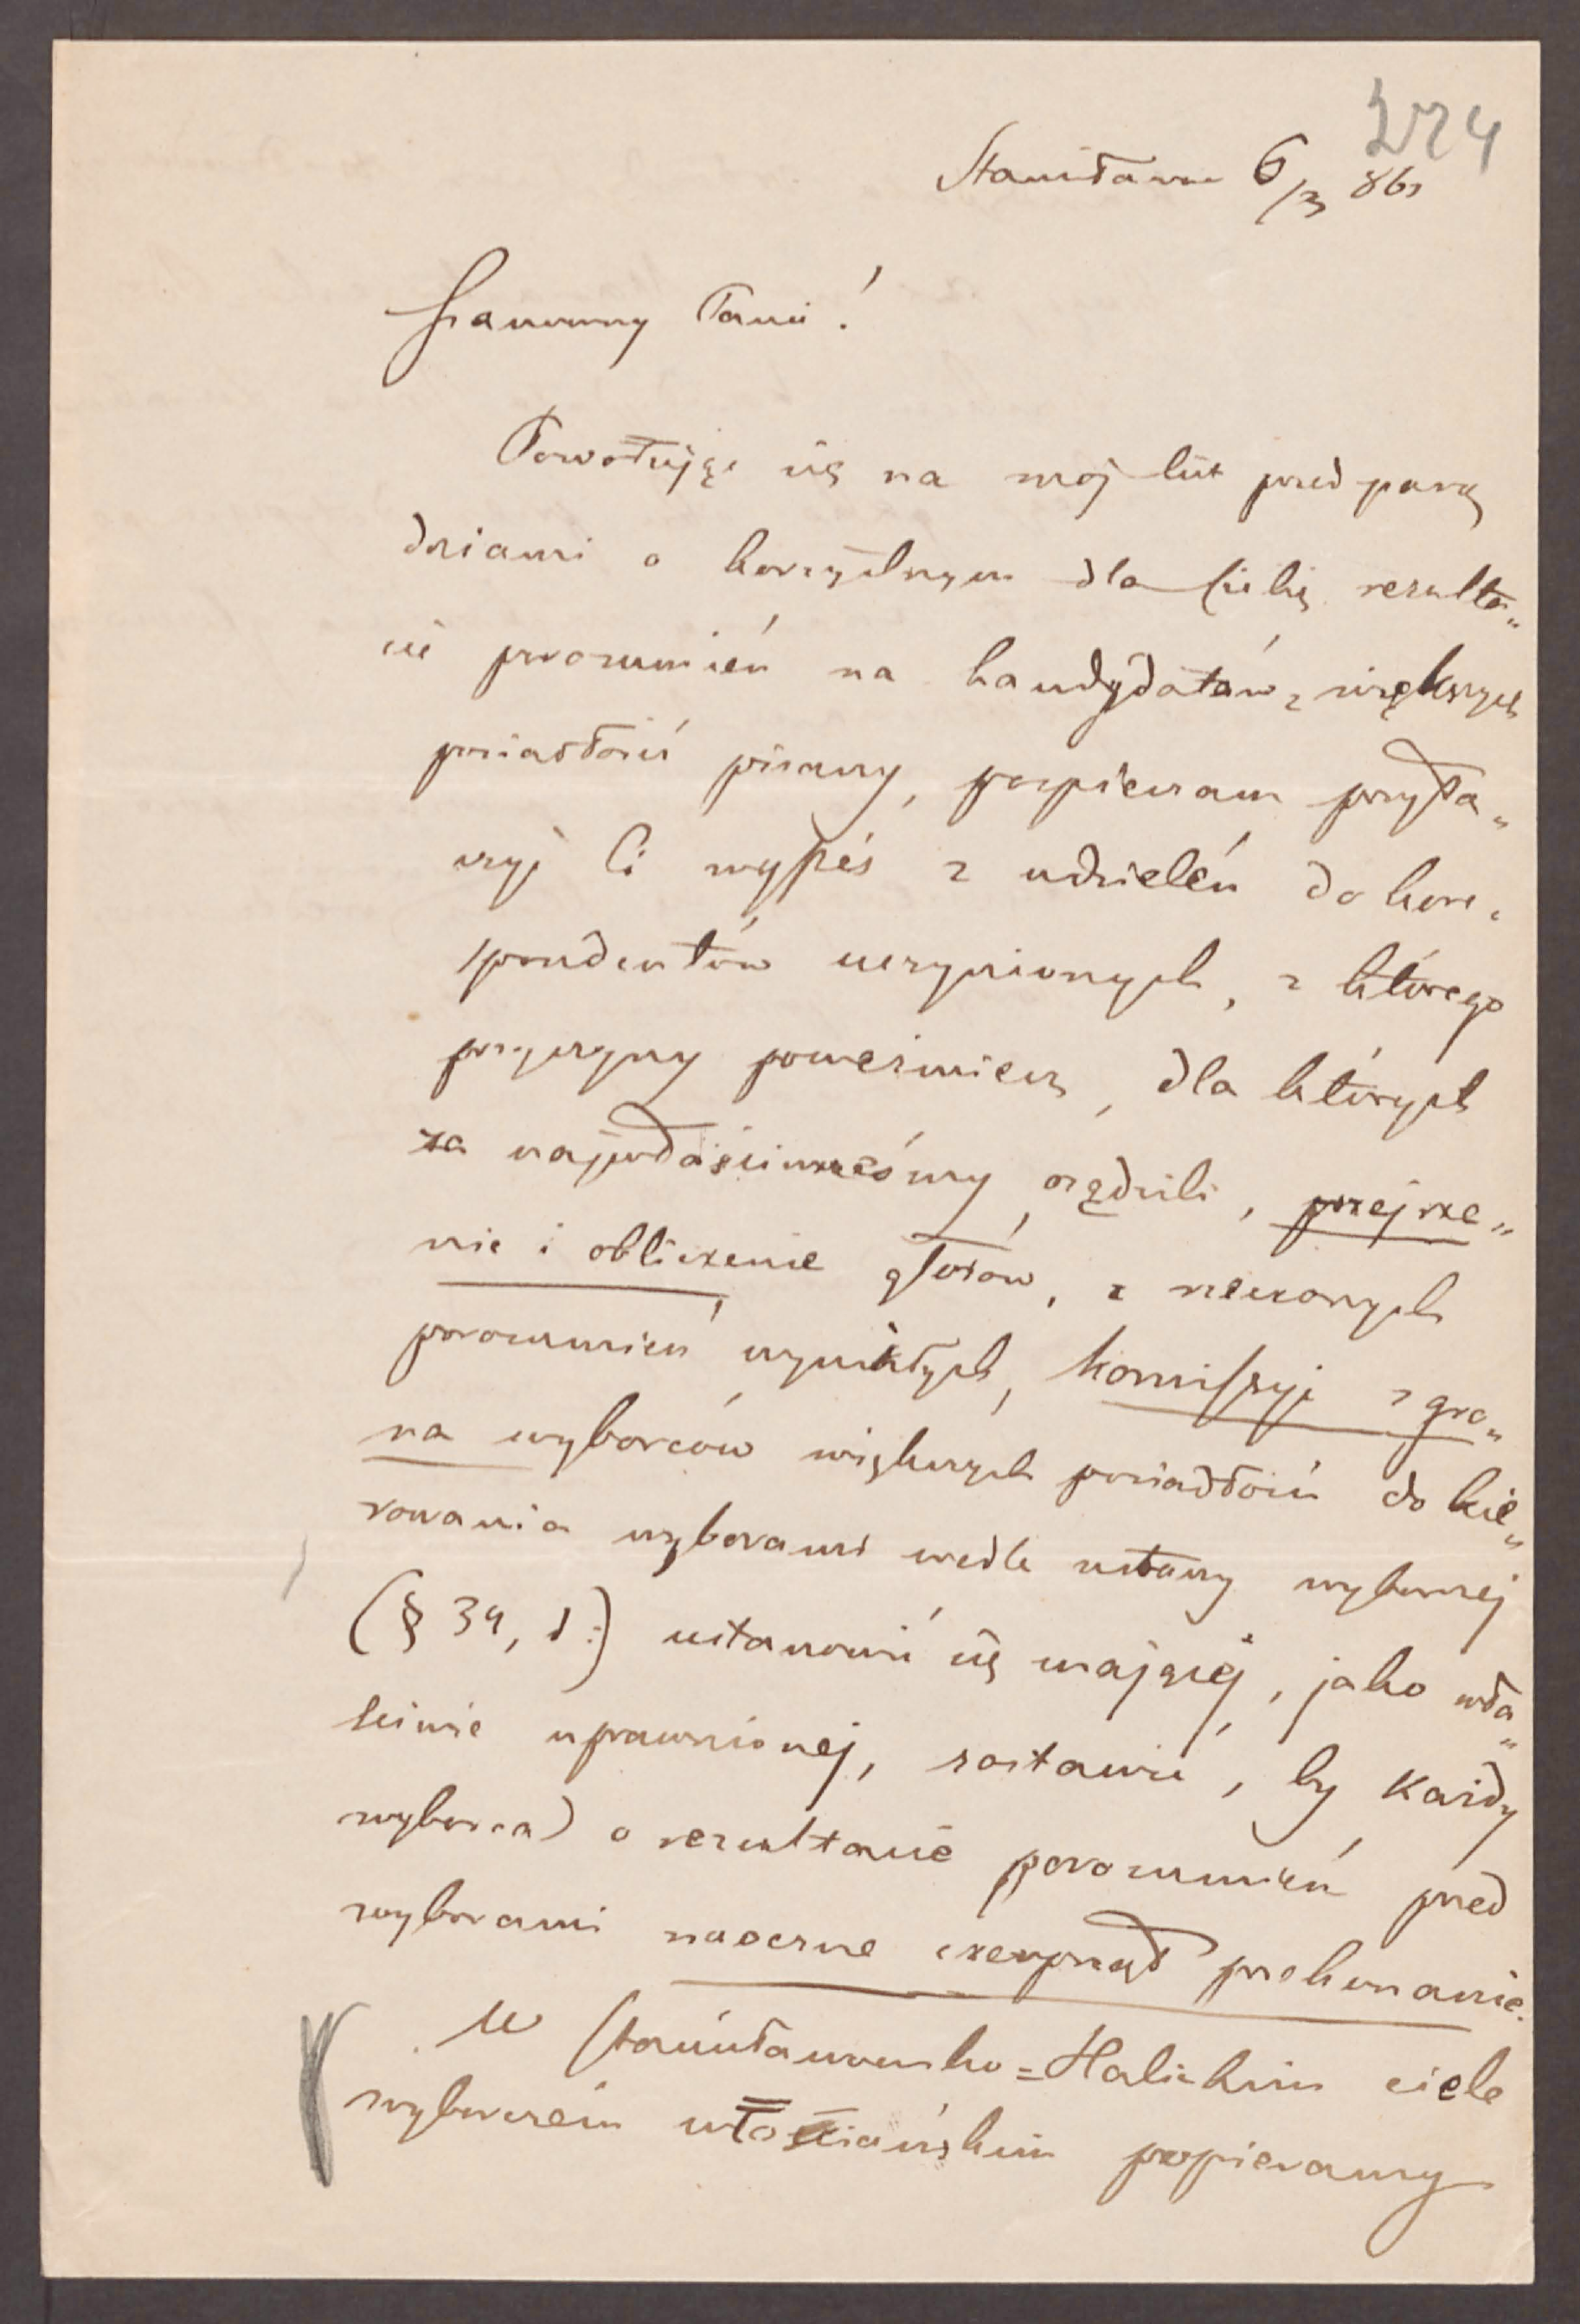 274
Stanisławów 6/3 861
Szanowny Panie!
Powołując się na mój list przed parą
dniami o korzystnym dla Ciebie rezulta„
cie porozumień na kandydatów z większych
posiadłości pisany, pospieszam przyłą„
czyć Ci wypis z udzieleń do kore„
spondentów uczynionych, z którego
przyczyny poweźmiesz, dla których
za najwłaściwsześmy osądzili, przejrze„
nie i obliczenie głosów, z rzeczonych
porozumień wynikłych, komissyi z gro„
na wyborców większych posiadłości do kie„
rowania wyborami wedle ustawy wyborczej
(§ 34, d:) ustanowić się mającej, jako wła„
ściwie uprawnionej, zostawić, by każdy
wyborca) o rezultacie porozumień przed
wyborami naoczne czerpnął przekonanie.
W Stanisławowsko=Halickim ciele
wyborczem włościańskim popieramy